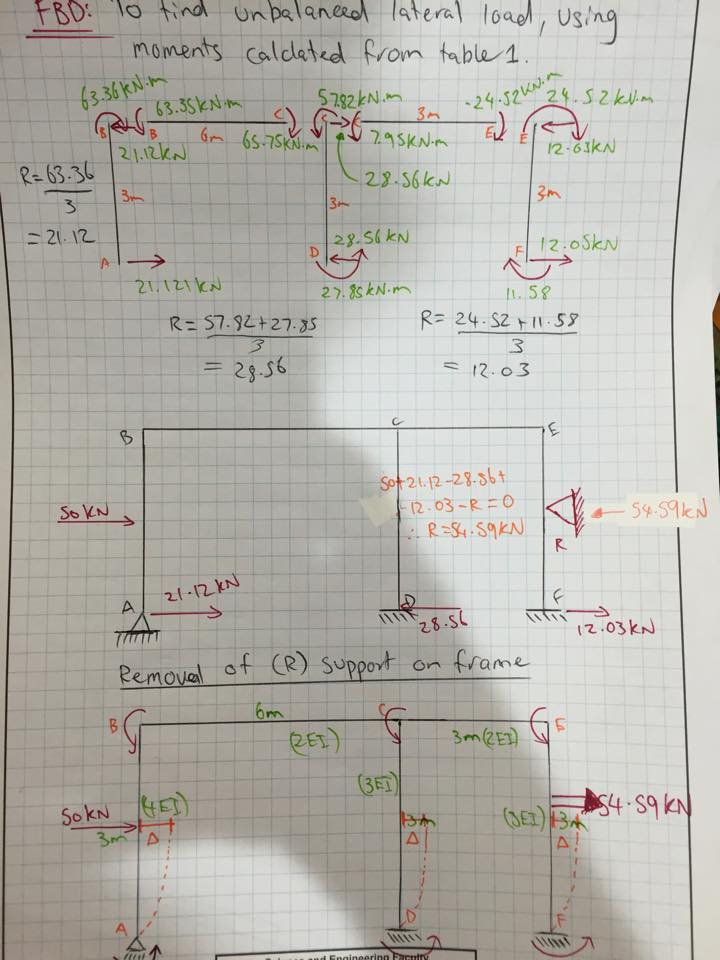 FBD: To find unbalanced lateral load, using
moments calclated from table 1.
63.36kN.m
63.35kN.m
57.82kN.m
-24.52kN.m
24.52kN.m
B
B
C
C
3m
E
E
6m
21.12kN
65.75kN.m
7.95kN.m
12.03kN
R=63.36
3
= 21.12
28.56kN
3m
3m
3m
A
D
28.56kN
F
12.05kN
21.121kN
27.85kN.m
11.58
R= 57.82+27.85
3
= 28.56
R= 24.52+11.58
3
= 12.03
B
C
E
50kN
50+21.12-28.56+
12.03-R=0
∴ R=54.59kN
54.59kN
R
A
21.12kN
D
28.56
F
12.03kN
Removal of (R) support on frame
B
6m
C
E
(2EI)
3m(2EI)
(3EI)
50kN
(4EI)
54.59kN
3m
Δ
3m
Δ
(3EI)
3m
Δ
A
D
F
Science and Engineering Faculty